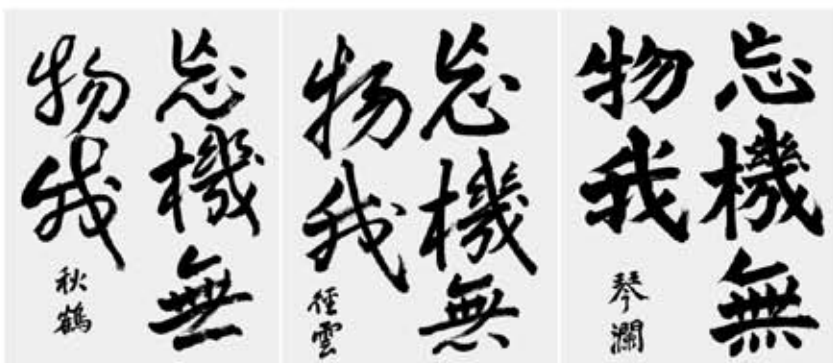 忘機無
物我
秋鶴
忘機無
物我
徑雲
忘機無
物我
琴瀾